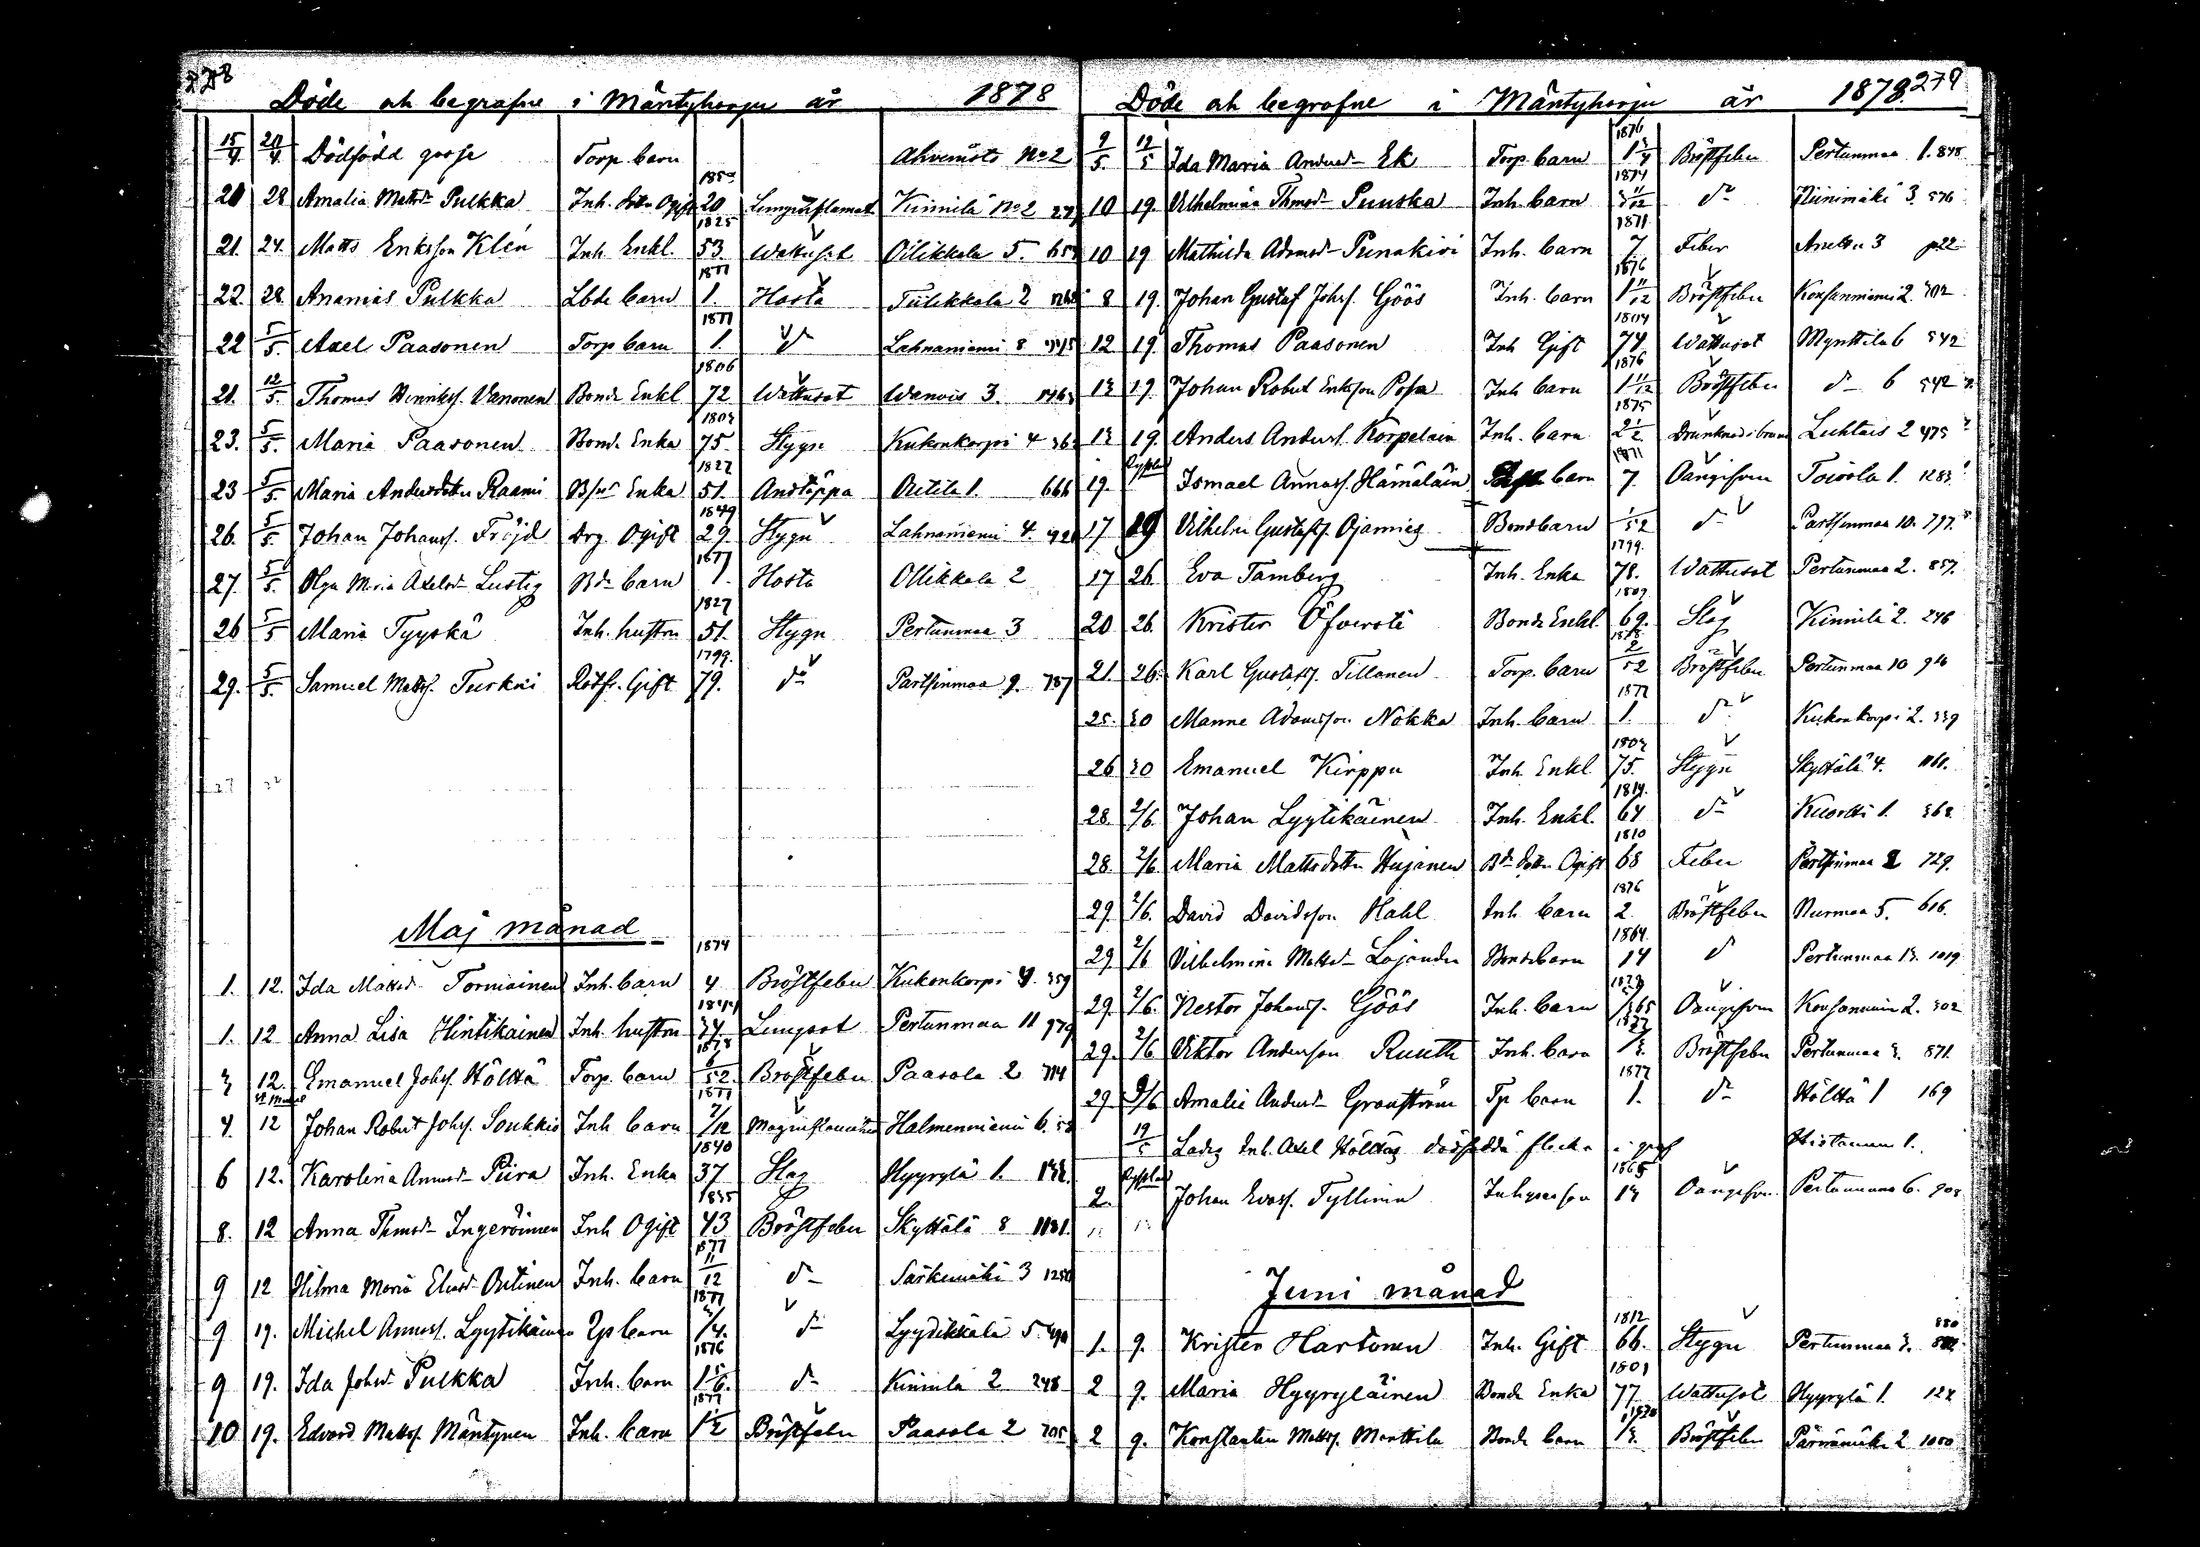 278
Döde och begrafne i Mäntyharju år 1878
15/4 20/4 Dödfödd gosse Torp. barn Ahvenisto No 2
20 28 Amalia Mattsdr Pulkka Inh. dotter Ogift 20 Kinnilä No 2
1825
21. 24. Matts Eriksson Klén Inh. Enkl. 53. Wattusot Ollikkala 5.
1877
22. 28. Ananias Pulkka Lbde barn 1. Hosta 2
1877
22 5/5. Axel Paasonen Torp barn 1. do Lahnaniemi 8
1806
21. 12/5. Thomas Henrikss. Vanonen Bonde Enkl 72 Wattusot 3.
1803
23. 5/5. Maria Paasonen Bond. Enka 75. Stygn Kukonkorpi 4
1827
23 5/5. Maria Andersdotter Raami Enka 51. Andtäppa 1. 666
1849
26. 5/5. Johan Johanss. Fröjd Drg Ogift 29. Stygn Lahnaniemi 4.
1877
27. 5/5. Olga Maria Axelsdr Lustig Bde barn 1. Hosta Ollikkala 2
1827
26 5/5 Maria Tyyskä Inh. hustru 51. Stygn Pertunmaa 3
1799.
29. 5/5. Samuel Mattss. Turkki Rotfr. Gift 79. do Partsinmaa 9. 787
Maj månad
1874
1. 12. Ida Mattsdr Torniainen Inh. barn 4 Bröstfeber Kukonkorpi 4. 359
1. 12 Anna Lisa Hintikainen Inh. hustru 34. Lungsot Pertunmaa 11 979
1878
3 12. Emanuel Johss. Hölttä Torp. barn 6/52 Bröstfeber Paasola 2 714
1877
4. 12 Johan Robert Johss. Soukkio Inh barn 7/12 Halmeniemi 6.
1840
6 12. Karolina Piira Inh. Enka 37 Slag Hyyrylä 1. 132.
1835
8. 12 Anna Thmsdr Ingeröinen Inh Ogift 43 Bröstfeber Skyttälä 8 1181.
1877
9 12 Hilma Maria Inh. barn 11/12 do Särkemäki 3 1250
1877
9 19. Michel Lyytikäinen Tp barn 3/4. do Lyytikkälä 5.
1876
9 19. Ida Johsdr Pulkka Inh. barn 1 5/6. do Kinnilä 2 248
1877
10 19. Edvard Mattss. Mäntynen Inh. barn 1/2 Bröstfeber Paasola 2 705
279
Döde och begrafne i Mäntyharju år 1878.
1876
9/5. 12/5 Ida Maria Andersdr Ek Torp. barn 1 3/4 Bröstfeber Pertunmaa 1. 848
1874
10 19. Vilhelmina Thmsdr Puuska Inh. barn 3 11/12 do Niinimäki 3. 576
1871
10 19 Mathilda Adamsdr Punakivi Inh. barn 7. Feber 3
1876
8 19. Johan Gustaf Johss. Göös Inh. barn 1 11/12 Bröstfeber Korsanniemi 2. 302
1804
12 19. Thomas Paasonen Inh Gift 74 Wattusot Mynttilä 6 542
1876
13 19. Johan Robert Eriksson Inh barn 1 11/12 Bröstfeber do 6 542
1875
13 19. Anders Anderss. Korpelain Inh. barn 2 1/2. Luhtais 2 475
1871
19. Ismael Annass. Hämäläin barn 7. Oangifven Toivola 1. 1283
17 19 Vilhelm Gustafss. Ojaniies Bondbarn 1/52 do Partsinmaa 10. 797.
1799.
17 26. Eva Tamberg Inh. Enka 78. Wattusot Pertunmaa 2. 857.
1809.
20 26. Krister Öfversti Bonde Enkl. 69. Slag Kinnilä 2. 246
1878.
21. 26. Karl Gustafss. Tillanen Torp. barn 2/52 Bröstfeber Pertunmaa 10
1877
25. 30 Manne Adamsson Nokka Inh. barn 1. do Kukonkorpi 2. 339
1803
26 30 Emanuel Kirppu Inh. Enkl 75. Stygn Skyttälä 4. 1161.
1814.
28. 2/6. Johan Lyytikäinen Inh. Enkl. 64 do Kuortti 1. 368
1810
28. 2/6. Maria Mattsdotter Hujanen Bde dotter Ogift 68 Feber Partsinmaa 2 729.
1876
29. 2/6. David Davidsson Hahl Inh. barn 2. Bröstfeber Nurmaa 5. 616.
1864.
29. 2/6 Vilhelmina Mattsdr Lojander Bondebarn 14 do Pertunmaa 13. 1019
1878
29. 2/6. Nestor Johanss. Göös Inh. barn 1/365 Oangifven Korsanniemi 2. 302
1877
29. 2/6 Viktor Andersson Ruuth Inh. barn Bröstfeber Pertunmaa 3. 871.
1877
29. 2/6 Amalie Andersdr Granström Tp barn 1. do Hölttä 1 169
19/5 Inh. Axel Hölttäs dödfödda flicka i graf 1.
1865
2. Johan Evass. Tyllinen Inhyseson 13 Oangifven Pertunmaa 6.
Juni månad
1812
1. 9. Krister Hartonen Inh. Gift 66. Stygn Pertunmaa 3. 880
1801
2 9. Maria Hyyryläinen Bonde Enka 77. Wattusot Hyyrylä 1. 122
2 9. Konstantin Mattss. Monttila Bonde barn Bröstfeber Pärnämäki 2 1050